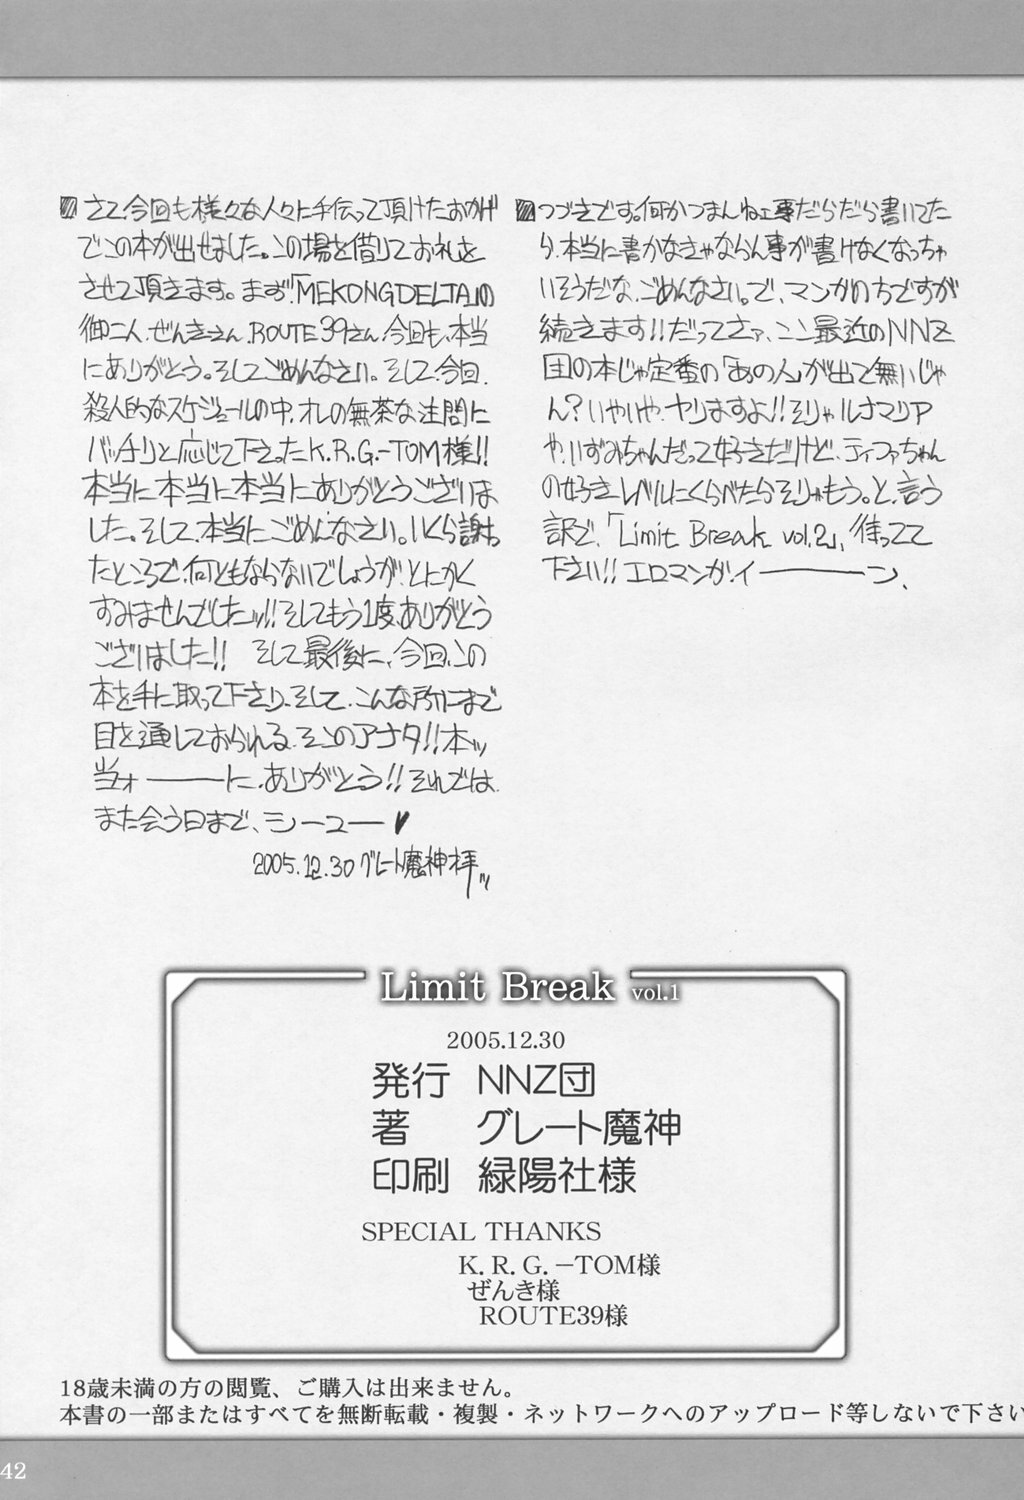 つづきです。何かつまんねェ事だらだら書いてた
ら、本当に書かなきゃならん事が書けなくなっちゃ
いそうだな、ごめんなさい。で、マンガのちですが
続きます!!だってさァ、ここ最近のNNZ
団の本じゃ定番の「あの人」が出て無いじゃ
ん?いやいや、ヤリますよ!!そりゃルナマリア
や、いずみちゃんだって好きだけど、ティファちゃん
の好きレベルにくらべたらそりゃもう。と、言う
訳で、「Limit Break vol.2」、待ってて
下さい!!エロマンガ、イ――――ン、
さて、今回も様々な人々に手伝って頂けたおかげ
でこの本が出せました。この場を借りてお礼を
させて頂きます。まず、「MEKONGDELTA」の
御二人、ぜんきさん、ROUTE39さん、今回も、本当
にありがとう。そしてごめんなさい。そして、今回、
殺人的なスケジュールの中、オレの無茶な注問に
バッチリと応じて下さったK.R.G.-TOM様!!
本当に本当に本当にありがとうございま
した。そして、本当にごめんなさい。いくら謝っ
たところで、何ともならないでしょうが、とにかく
すみませんでしたッ!!そしてもう1度、ありがとう
ございました!! そして最後に、今回、この
本を手に取って下さり、そして、こんな所にまで
目を通しておられる、そこのアナタ!!本ッ
当ォ――――に、ありがとう!!それでは、
また会う日まで、シーユー♥
2005.12.30 グレート魔神 拝ッ
Limit Break vol.1
2005.12.30
発行 NNZ団
著 グレート魔神
印刷 緑陽社様
SPECIAL THANKS
K.R.G.－TOM様
ぜんき様
ROUTE39様
18歳未満の方の閲覧、ご購入は出来ません。
本書の一部またはすべてを無断転載・複製・ネットワークへのアップロード等しないで下さい
42